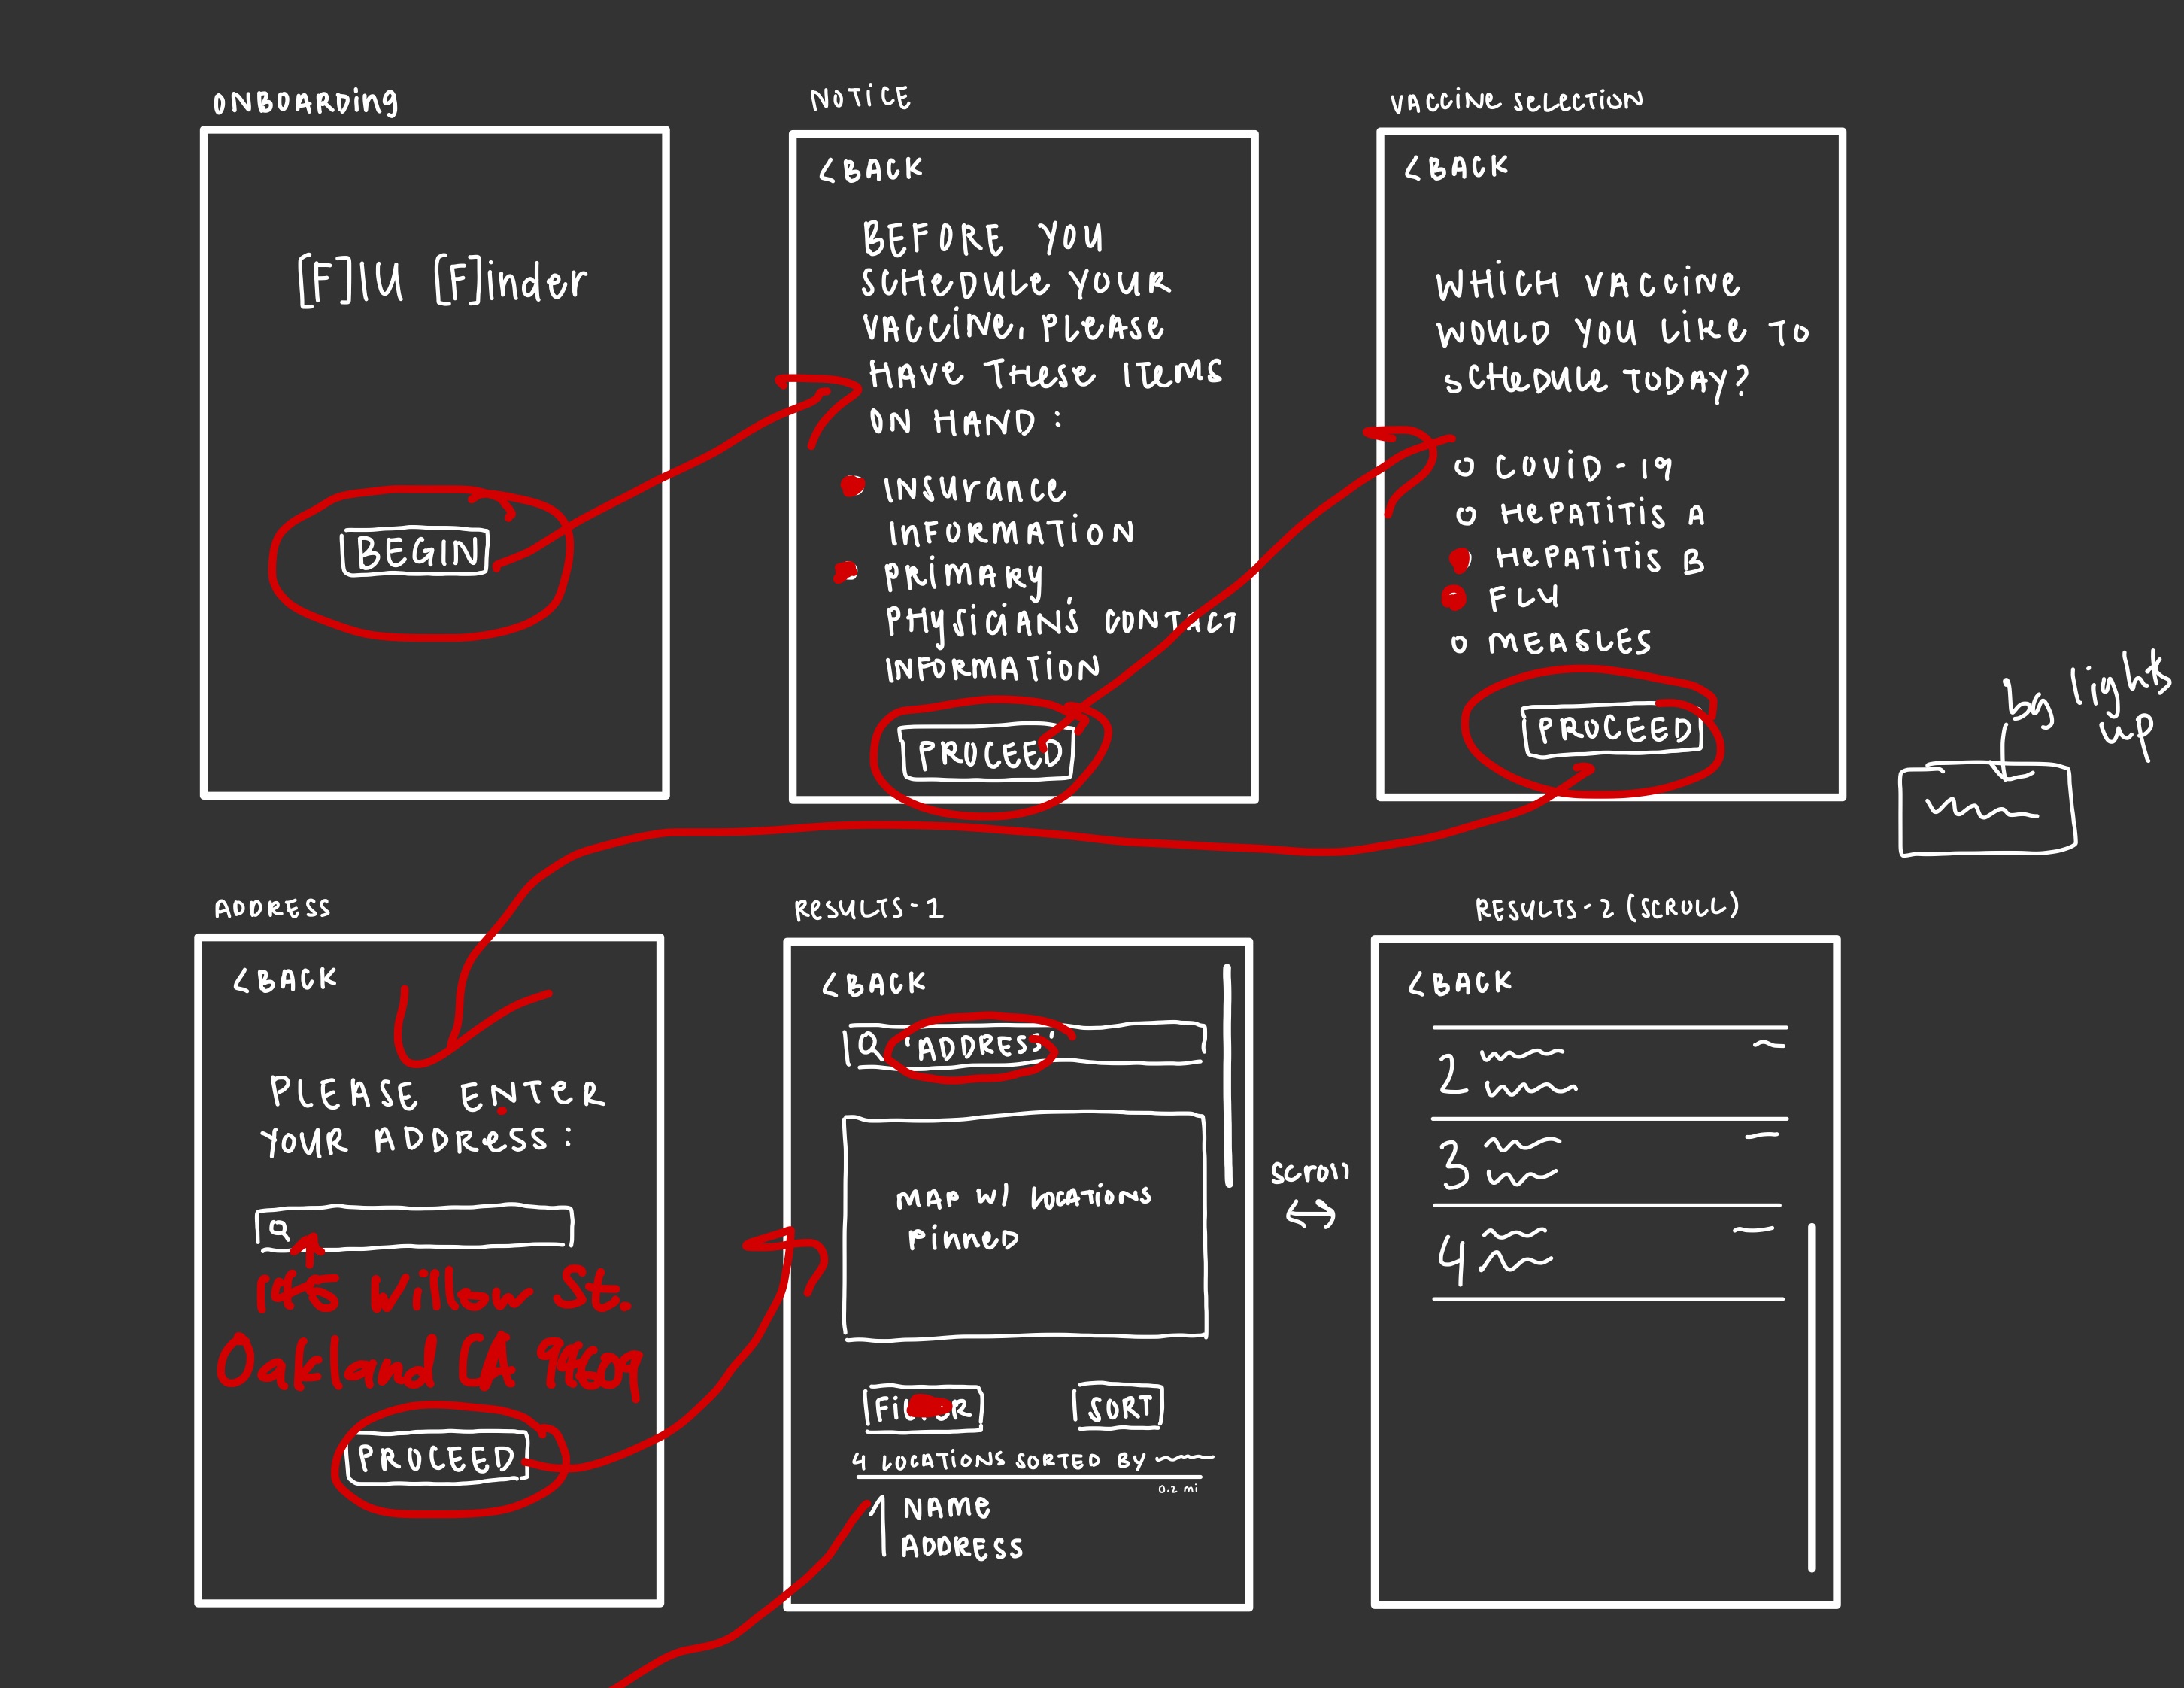 ONBOARDing
[F]lU [F]inder
BEGIN
NOTiCE
<BACK
BEFORE YOU
SCHeDULe YOUR
VACCiNe, PLEASe
HAVe THese ITemS
ON HAND:
INSUrance
InFORMATION
PRiMARy
PHySiCiAN'S CONTACT
INFORMATiON
PROCEED
VACCiNe SeLeCTiON
<BACK
WHiCH VACCiNe
WOULD YOU LiKe TO
SCHeDULe TODAY?
COViD-19
HePATiTiS A
HePATiTiS B
FLU
MEASLES
PROCEED
lights
up
ADDRESS
<BACK
PLEASE ENTeR
YOUR ADDReSS:
Willow St.
Oakland CA
PROCEED
ReSULTS-1
<BACK
'ADDRESS'
MAP W/ LOCATiONS
PinneD
SORT
4 LOCATiONS SORTED BY
0.2 mi
1 NAMe
ADDRESS
scroll
RESULTS-2 (SCROLL)
<BACK
2
3
4